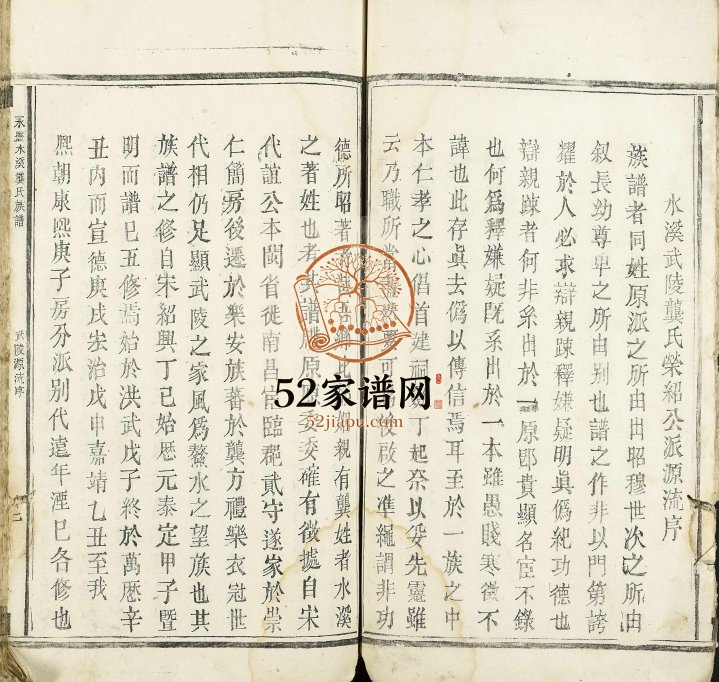 水溪武陵龔氏榮紹公派源流序
族譜者同姓原派之所由出昭穆世次之所由
叙長幼尊卑之所由别也譜之作非以門第誇
耀於人必求辯親踈釋嫌疑明眞僞紀功德也
辯親踈者何非系出於一原即貴顯名宦不錄
也何爲釋嫌疑既系出於一本雖愚賤寒微不
諱也此存眞去僞以傳信焉耳至於一族之中
本仁孝之心倡首建祠 丁起奈以妥先靈雖
云乃職所當 可 後啟之準繩謂非功
德所昭著 此 親有龔姓者水溪
之著姓也者其譜牒原 委確有徵據自宋
代誼公本閩省徙南昌 臨郡貳守遂家於崇
仁簡房後遷於樂安族蕃於龔方禮樂衣冠世
代相仍足顯武陵之家風爲鰲水之望族也其
族譜之修自宋紹興丁巳始歷元泰定甲子暨
明而譜巳五修焉始於洪武戊子終於萬歷辛
丑内而宣德庚戌宏治戊申嘉靖乙丑至我
熈朝康熈庚子房分派别代遠年湮巳各修也
水溪龔氏族譜
武陵源流序
二
52家谱网
52jiapu.com